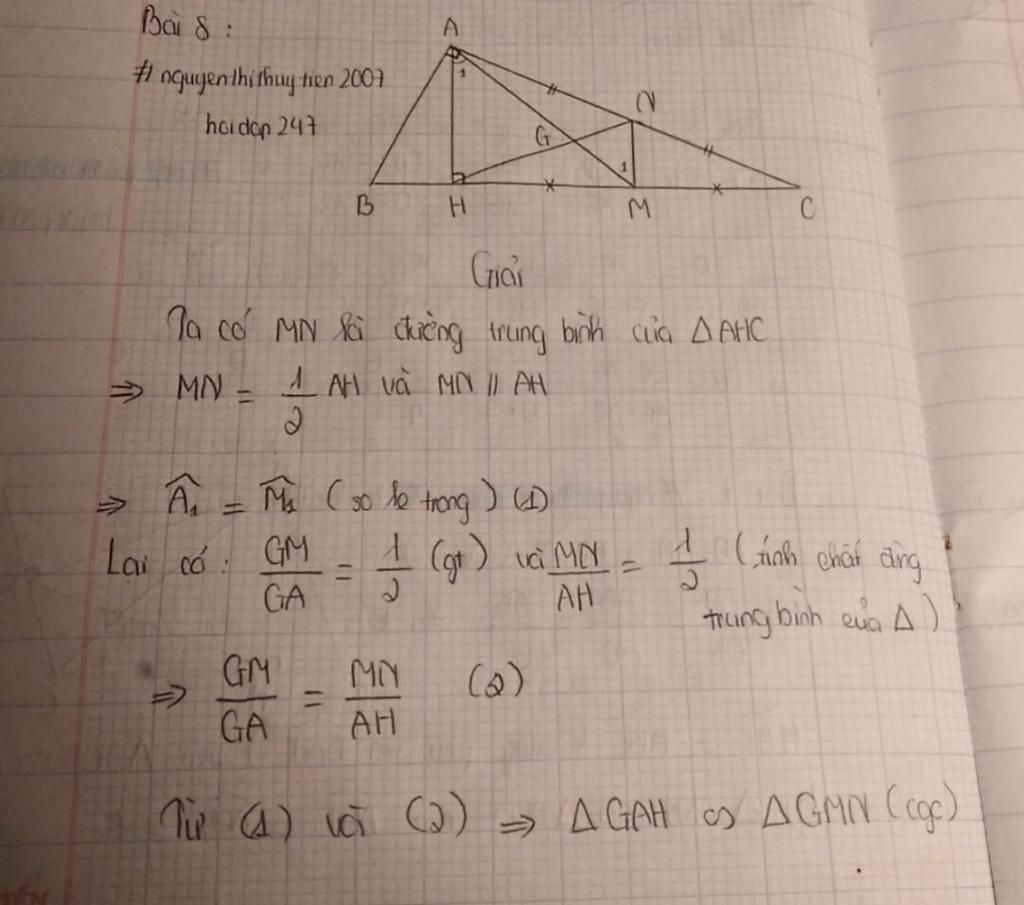 Bài 8 :
# nguyenthithuytien2007
hoidap 247
A
1
N
G
1
B H M C
Giải
Ta có MN là đường trung bình của ΔAHC
⇒ MN = 1/2 AH và MN // AH
⇒ Â₁ = M̂₁ (so le trong) (1)
Lại có : GM/GA = 1/2 (gt) và MN/AH = 1/2 (tính chất đường
trung bình của Δ)
⇒ GM/GA = MN/AH (2)
Từ (1) và (2) ⇒ ΔGAH ∽ ΔGMN (cgc)